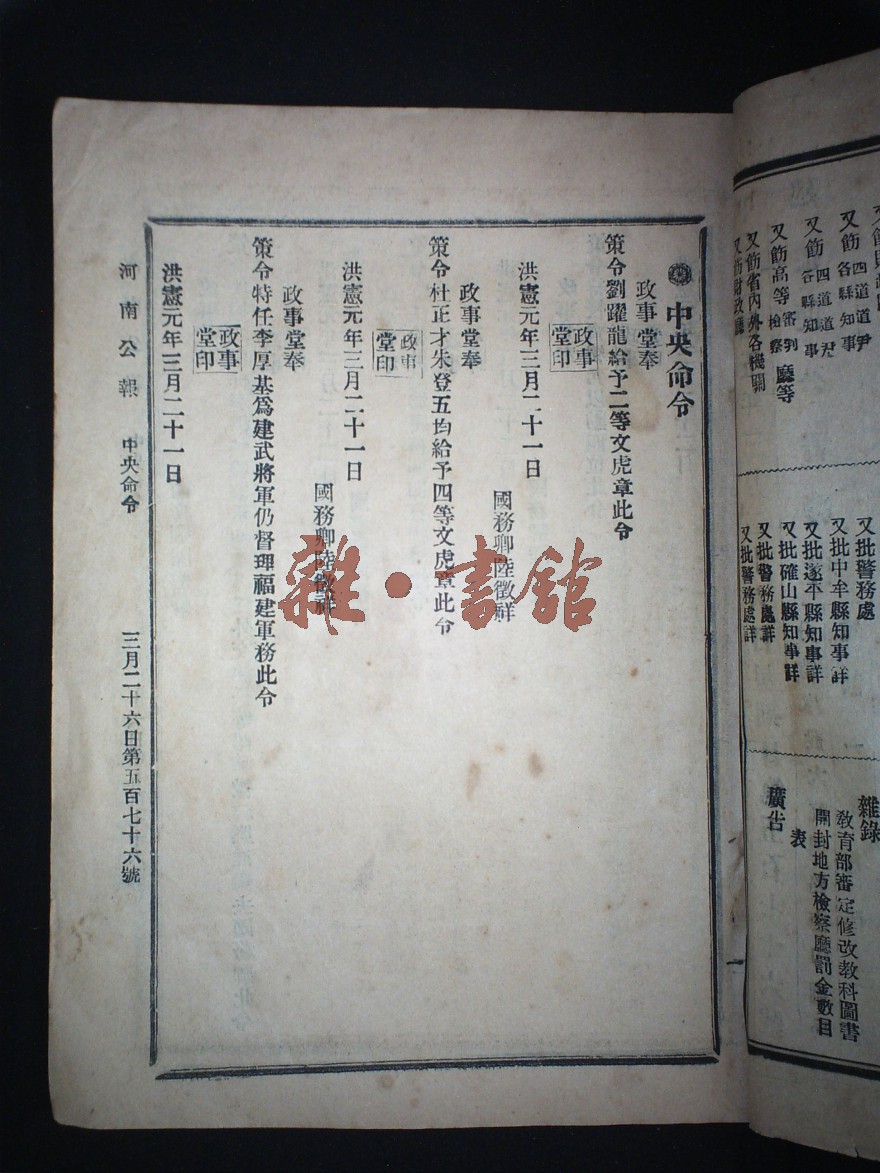 又飭四道道尹
各縣知事
又飭四道道尹
各縣知事
又飭高等審判
檢察
廳等
又飭省內外各機關
又飭財政廳
又批警務處
又批中牟縣知事詳
又批遂平縣知事詳
又批確山縣知事詳
又批警務處詳
又批警務處詳
雜錄
教育部審定修改教科圖書
表
開封地方檢察廳罰金數目
廣告
中央命令
政事堂奉
策令劉躍龍給予二等文虎章此令
政事
堂印
洪憲元年三月二十一日
國務卿陸徵祥
政事堂奉
策令杜正才朱登五均給予四等文虎章此令
政事
堂印
洪憲元年三月二十一日
國務卿陸徵祥
政事堂奉
策令特任李厚基爲建武將軍仍督理福建軍務此令
政事
堂印
洪憲元年三月二十一日
河南公報 中央命令 三月二十六日第五百七十六號
雜·書館